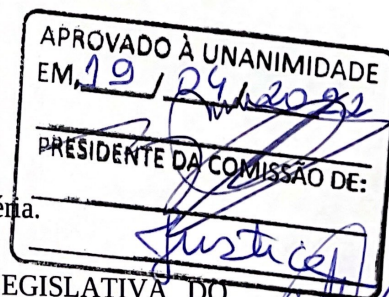 APROVADO À UNANIMIDADE
EM, 19 / 04 / 2022
PRESIDENTE DA COMISSÃO DE:
éria.
Justiça
EGISLATIVA DO